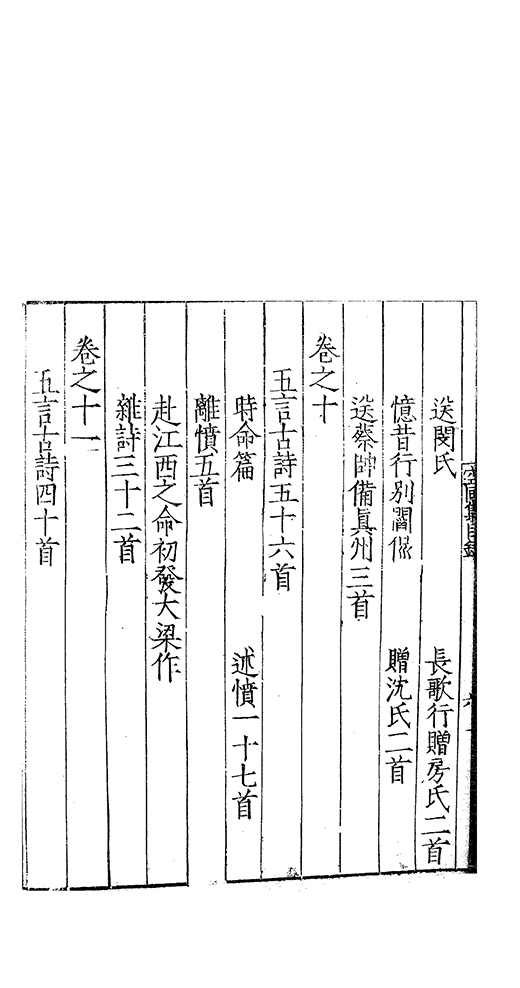 送閔氏　長歌行贈房氏二首
憶昔行別閻侃　贈沈氏二首
送蔡帥備眞州三首
卷之十
五言古詩五十六首
時命篇　述憤一十七首
離憤五首
赴江西之命初發大梁作
雜詩三十二首
卷之十一
五言古詩四十首